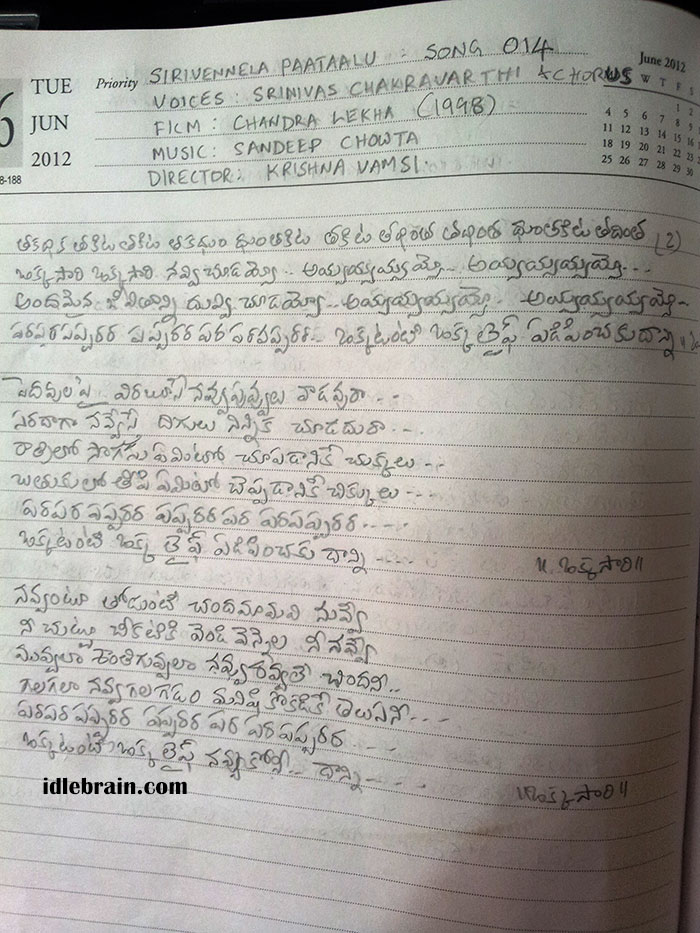 6
TUE
JUN
2012
8-188
Priority
SIRIVENNELA PAATAALU : SONG 014
VOICES : SRINIVAS CHAKRAVARTHI & CHORUS
FILM : CHANDRA LEKHA (1998)
MUSIC: SANDEEP CHOWTA
DIRECTOR: KRISHNA VAMSI.
June 2012
W T F S
1 2
4 5 6 7 8 9
11 12 13 14 15 16
18 19 20 21 22 23
25 26 27 28 29 30
తకధిక తకిట తకిట తకధుం తకిట (2)
ఒక్కసారి ఒక్కసారి నవ్వి చూడయ్యో.. అయ్యయ్యయ్యయ్యో... అయ్యయ్యయ్యయ్యో...
అందమైన జీవితాన్ని దువ్వి చూడయ్యో.. అయ్యయ్యయ్యయ్యో.. అయ్యయ్యయ్యయ్యో..
పరపరపప్పరర పప్పరరపర పరపప్పరర.. ఒక్కటంటే ఒక్క లైఫ్ ఏడిపించకు దాన్ని
పెదవులపై విరబూసే నవ్వు పువ్వులు వాడవురా...
సరదాగా నవ్వేసే దిగులు నిన్నిక చూడదురా...
రాత్రిలో సొగసు ఏమిటో చూపడానికే చుక్కలు...
బ్రతుకులో తీపి ఏమిటో చెప్పడానికే చిక్కులు...
పరపర పప్పరర పప్పరర పర పరపప్పరర....
ఒక్కటంటే ఒక్క లైఫ్ ఏడిపించకు దాన్ని....
॥ ఒక్కసారి॥
నవ్వంటూ తోడుంటే చందమామవి నువ్వే
నీ చుట్టూ చీకటికి వెండి వెన్నెల నీ నవ్వే
మువ్వలా చిందనీ..
గలగలా నవ్వగలగడం మనిషికొకడికే తెలుసనీ...
పరపర పప్పరర పప్పరర పర పరపప్పరర
ఒక్కటంటే ఒక్క లైఫ్ నవ్వుకోనీ.. దాన్ని....
॥ఒక్కసారి॥
idlebrain.com